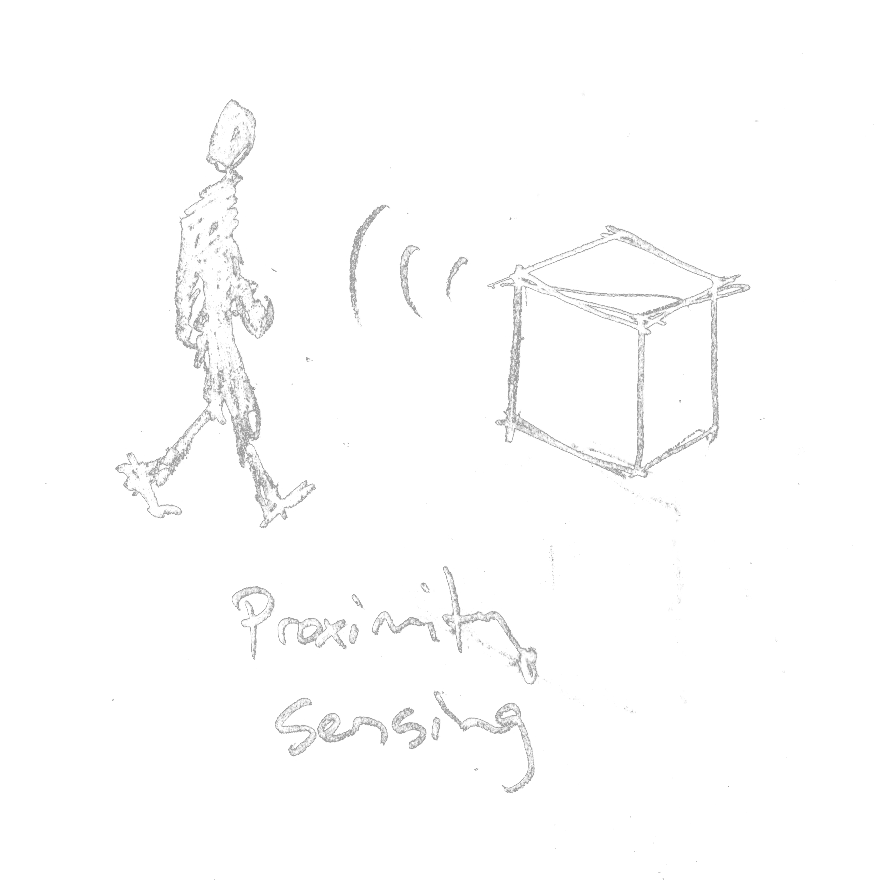 Proximity
Sensing